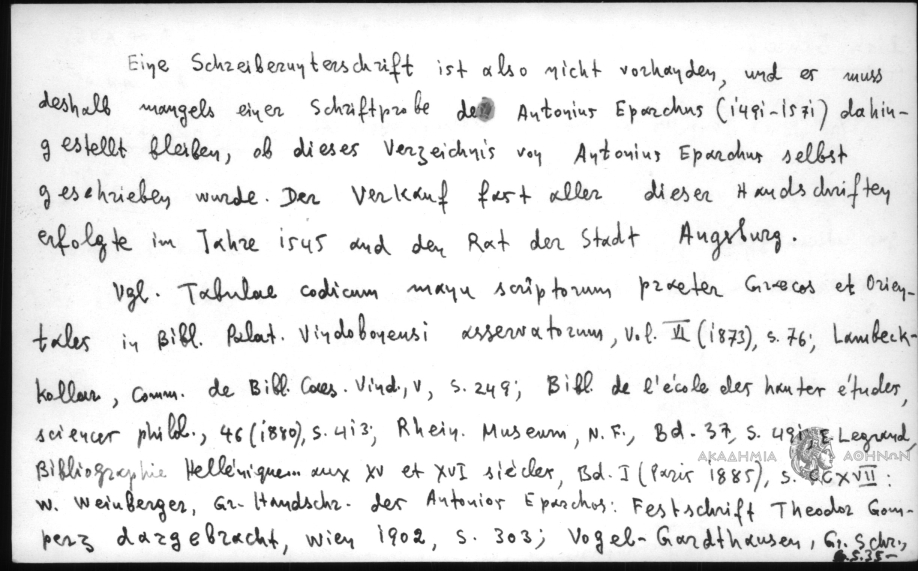 Eine Schreiberunterschrift ist also nicht vorhanden, und es muss
deshalb mangels einer Schriftprobe des Antonius Eparchus (1491-1571) dahin-
gestellt bleiben, ob dieses Verzeichnis von Antonius Eparchus selbst
geschrieben wurde. Der Verkauf fast aller dieser Handschriften
erfolgte im Jahre 1545 and den Rat der Stadt Augsburg.
Vgl. Tabulae codicum manu scriptorum praeter Graecos et Orien-
tales in Bibl. Palat. Vindobonensi asservatorum, Vol. VI (1873), S. 76; Lambeck-
Kollar, Comm. de Bibl. Caes. Vind., V, S. 249; Bibl. de l'école des hautes études,
sciences philol., 46 (1880), S. 413; Rhein. Museum, N. F., Bd. 37, S. 491; E. Legrand,
ΑΚΑΔΗΜΙΑ ΑΘΗΝΩΝ
Bibliographie Hellénique aux XV et XVI siècles, Bd. I (Paris 1885), S. CCXVII:
W. Weinberger, Gr. Handschr. des Antonios Eparchos: Festschrift Theodor Gom-
perz dargebracht, Wien 1902, S. 303; Vogel-Gardthausen, Gr. Schr.,
S. 35-